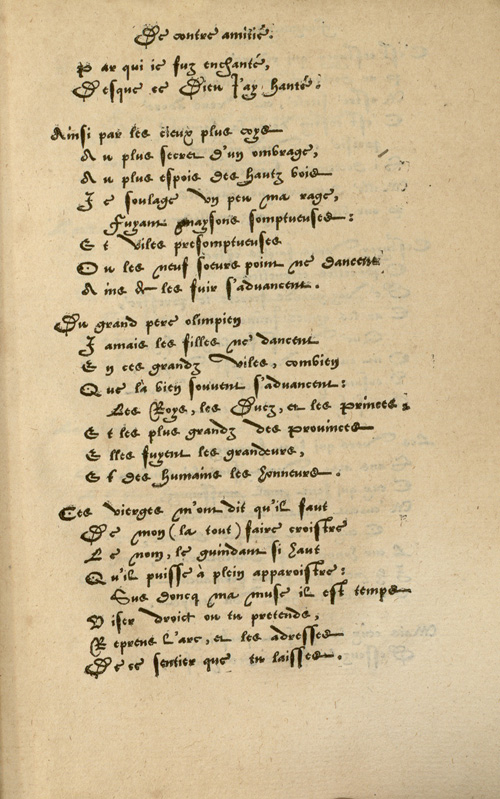 De contre amitié.
Par qui ie fuz enchanté,
Desque ce Dieu J'ay hanté.
Ainsi par les cieux plus coys
Au plus secret d'un ombrage,
Au plus espois des hautz bois
Je soulage un peu ma rage,
Fuyant maysons somptueuses:
Et viles presomptueuses
Ou les neuf soeurs point ne dancent
Ains de les fuir s'advancent.
Du grand pere olimpien
Jamais les filles ne dancent
En ces grandz viles, combien
Que là bien souvent s'advancent:
Les Roys, les Ducz, et les princes:
Et les plus grandz des provinces
Elles fuyent les grandeurs,
Et des humains les honneurs.
Ces vierges m'ont dit qu'il faut
De mon (la tout) faire croistre
Le nom, le guindant si haut
Qu'il puisse à plein apparoistre:
Sus doncq ma muse il est temps
Viser droict ou tu pretends,
Reprens l'arc, et les adresses
De ce sentier que tu laisses.